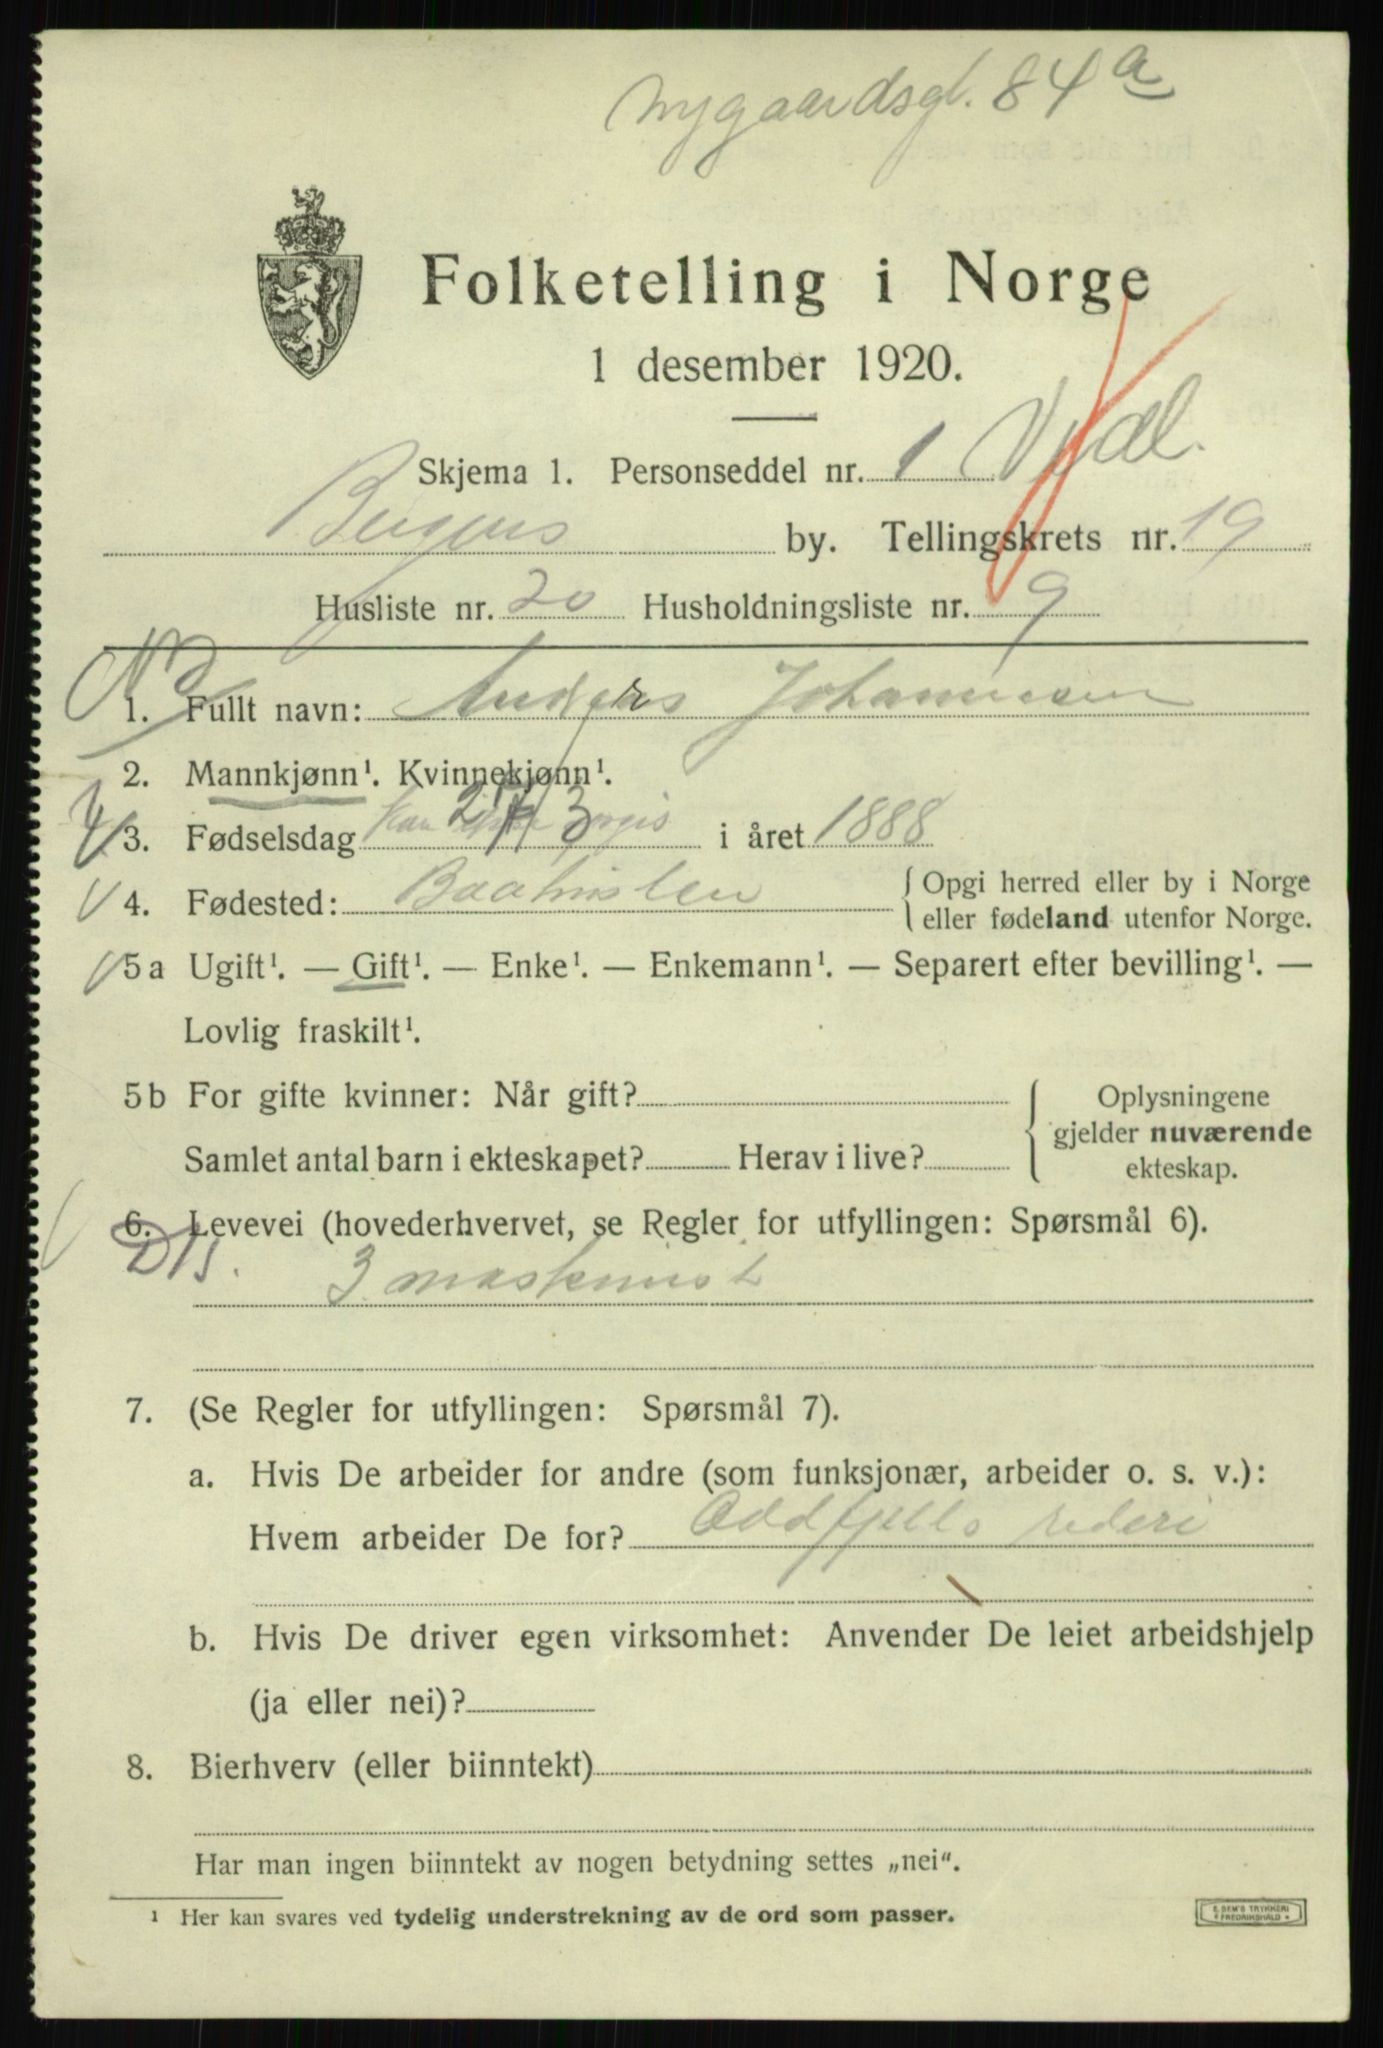 Nygaardsgt. 84 a
Folketelling i Norge
1 desember 1920.
Skjema 1. Personseddel nr. 1
Bergens by. Tellingskrets nr. 19
Husliste nr. 20 Husholdningsliste nr. 9
1. Fullt navn: Anders Johannesen
2. Mannkjønn¹. Kvinnekjønn¹.
3. Fødselsdag Kan ikke opgis 3 i året 1888
4. Fødested: Baahuslen { Opgi herred eller by i Norge
eller fødeland utenfor Norge.
5 a Ugift¹. — Gift¹. — Enke¹. — Enkemann¹. — Separert efter bevilling¹. —
Lovlig fraskilt¹.
5 b For gifte kvinner: Når gift?
Samlet antal barn i ekteskapet? Herav i live?
Oplysningene
gjelder nuværende
ekteskap.
6. Levevei (hovederhvervet, se Regler for utfyllingen: Spørsmål 6).
3 maskinist
7. (Se Regler for utfyllingen: Spørsmål 7).
a. Hvis De arbeider for andre (som funksjonær, arbeider o. s. v.):
Hvem arbeider De for? Oddfjells rederi
b. Hvis De driver egen virksomhet: Anvender De leiet arbeidshjelp
(ja eller nei)?
8. Bierhverv (eller biinntekt)
Har man ingen biinntekt av nogen betydning settes „nei“.
¹ Her kan svares ved tydelig understrekning av de ord som passer.
E. SEM'S TRYKKERI
FREDRIKSHALD